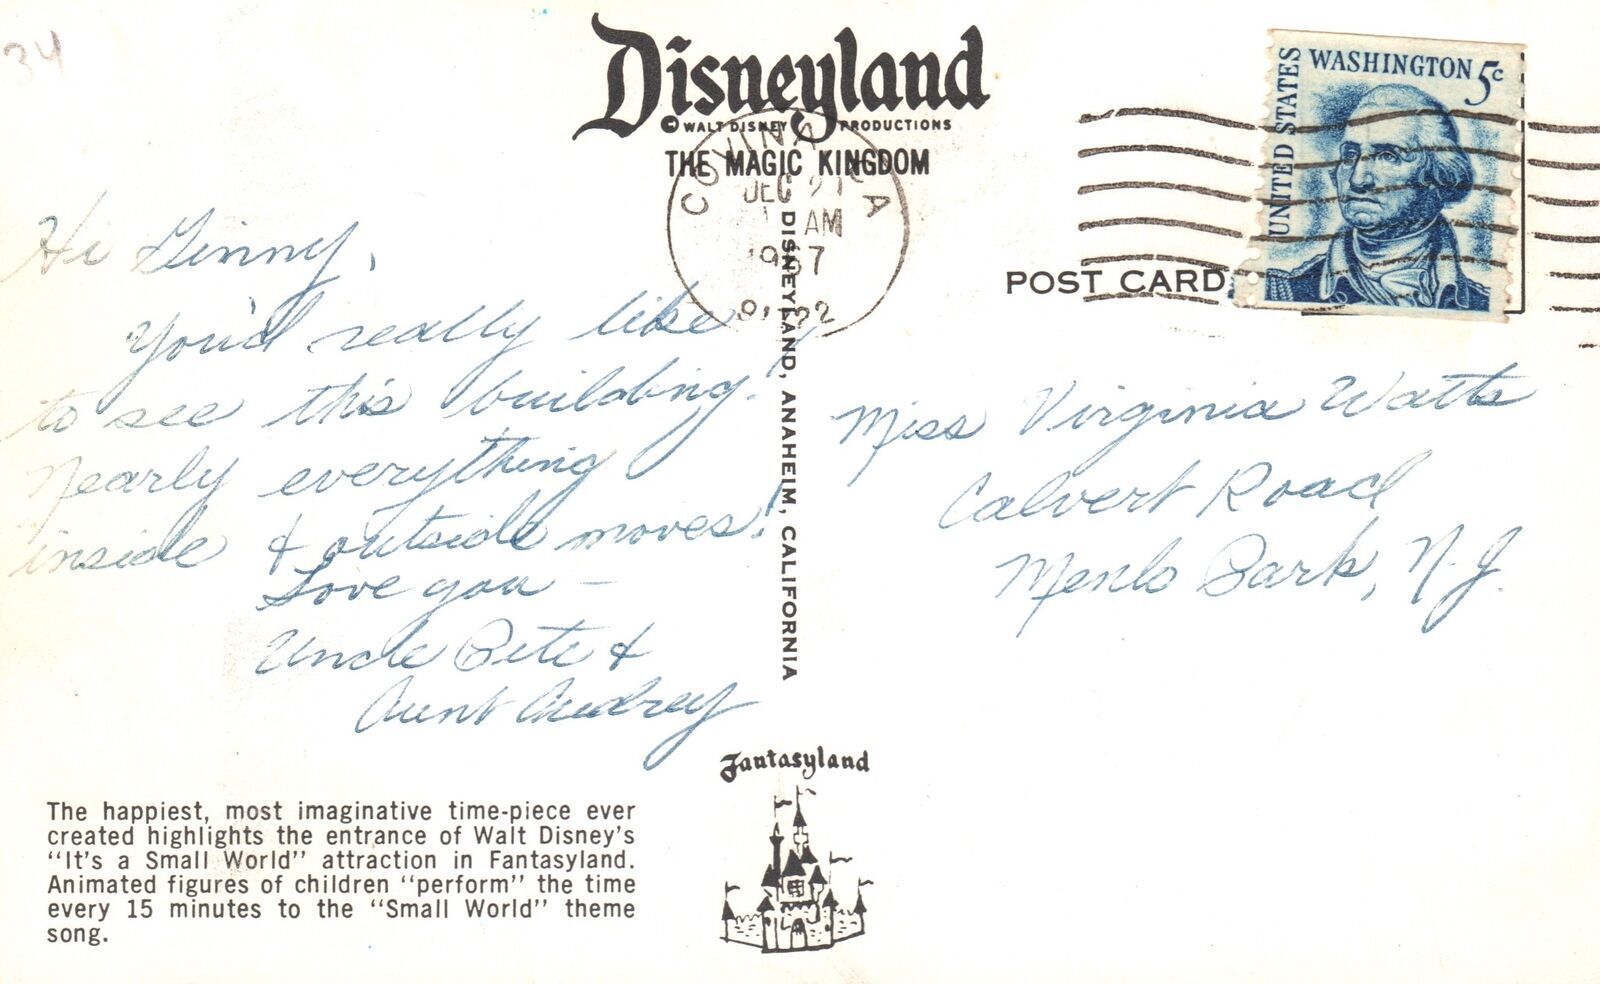 34
Disneyland
© WALT DISNEY PRODUCTIONS
THE MAGIC KINGDOM
UNITED STATES
WASHINGTON 5c
COVING CA
DEC 21
AM
1967
POST CARD
DISNEYLAND, ANAHEIM, CALIFORNIA
Hi Ginny,
You'd really like
to see this building!
Nearly everything
inside & outside moves!
Love you –
Uncle Pete &
Aunt Audrey
Miss Virginia Watts
Calvert Road
Menlo Park, N.J.
Fantasyland
The happiest, most imaginative time-piece ever
created highlights the entrance of Walt Disney's
"It's a Small World" attraction in Fantasyland.
Animated figures of children "perform" the time
every 15 minutes to the "Small World" theme
song.